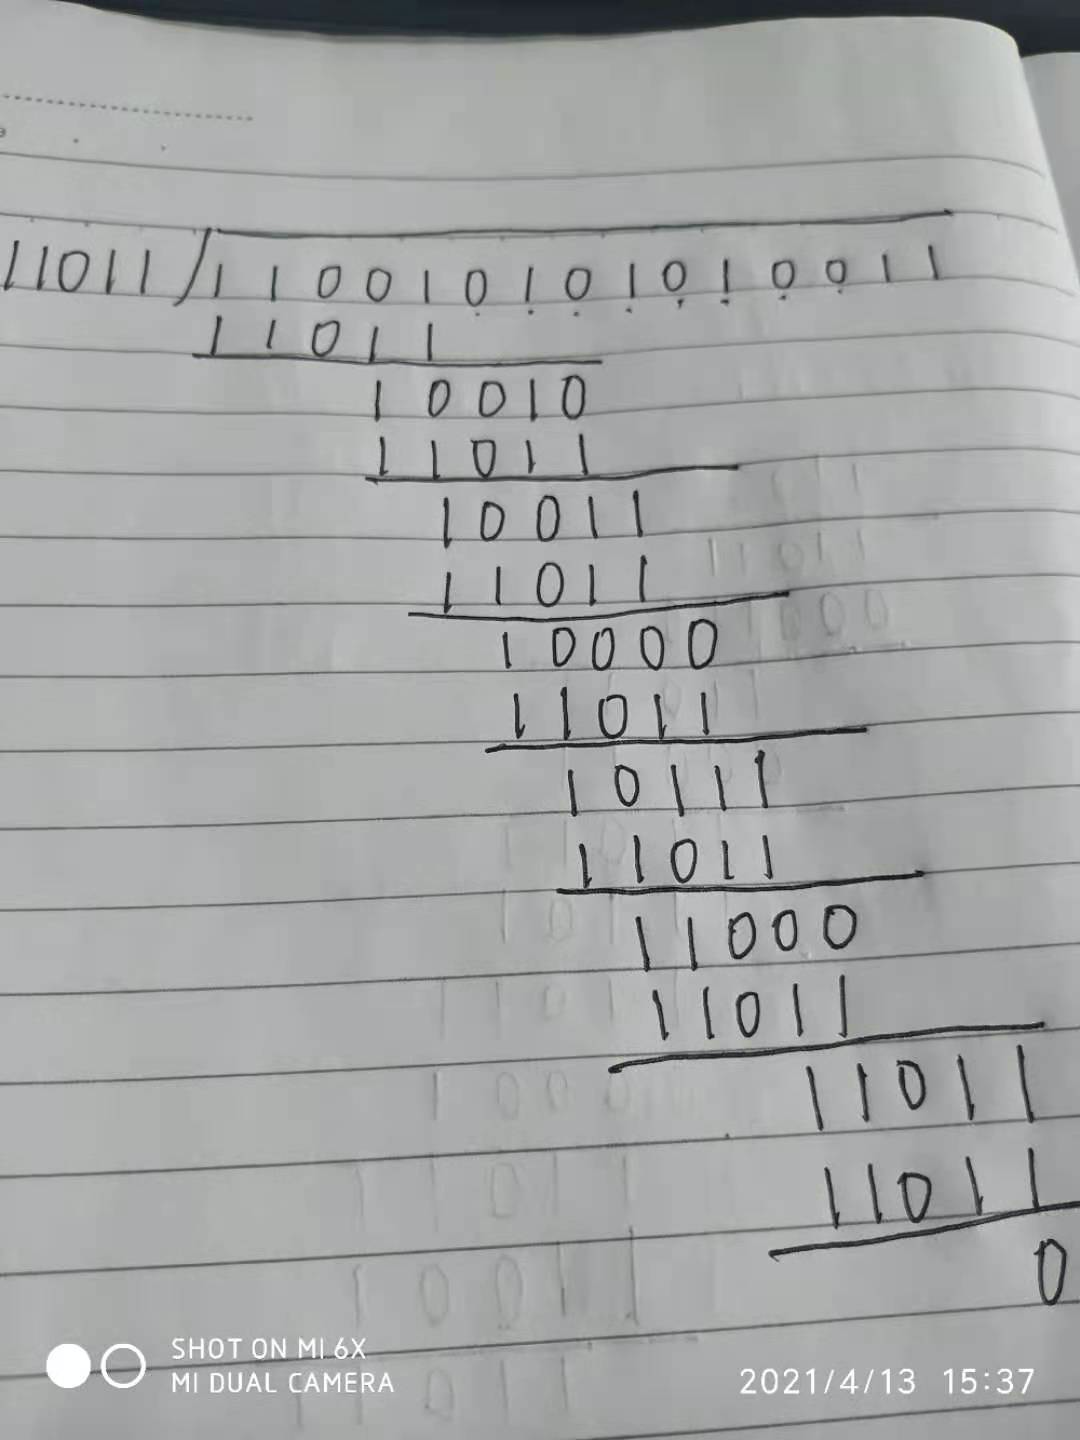 11011 110010101010011
11011
10010
11011
10011
11011
10000
11011
10111
11011
11000
11011
11011
11011
0
SHOT ON MI 6X
MI DUAL CAMERA
2021/4/13 15:37